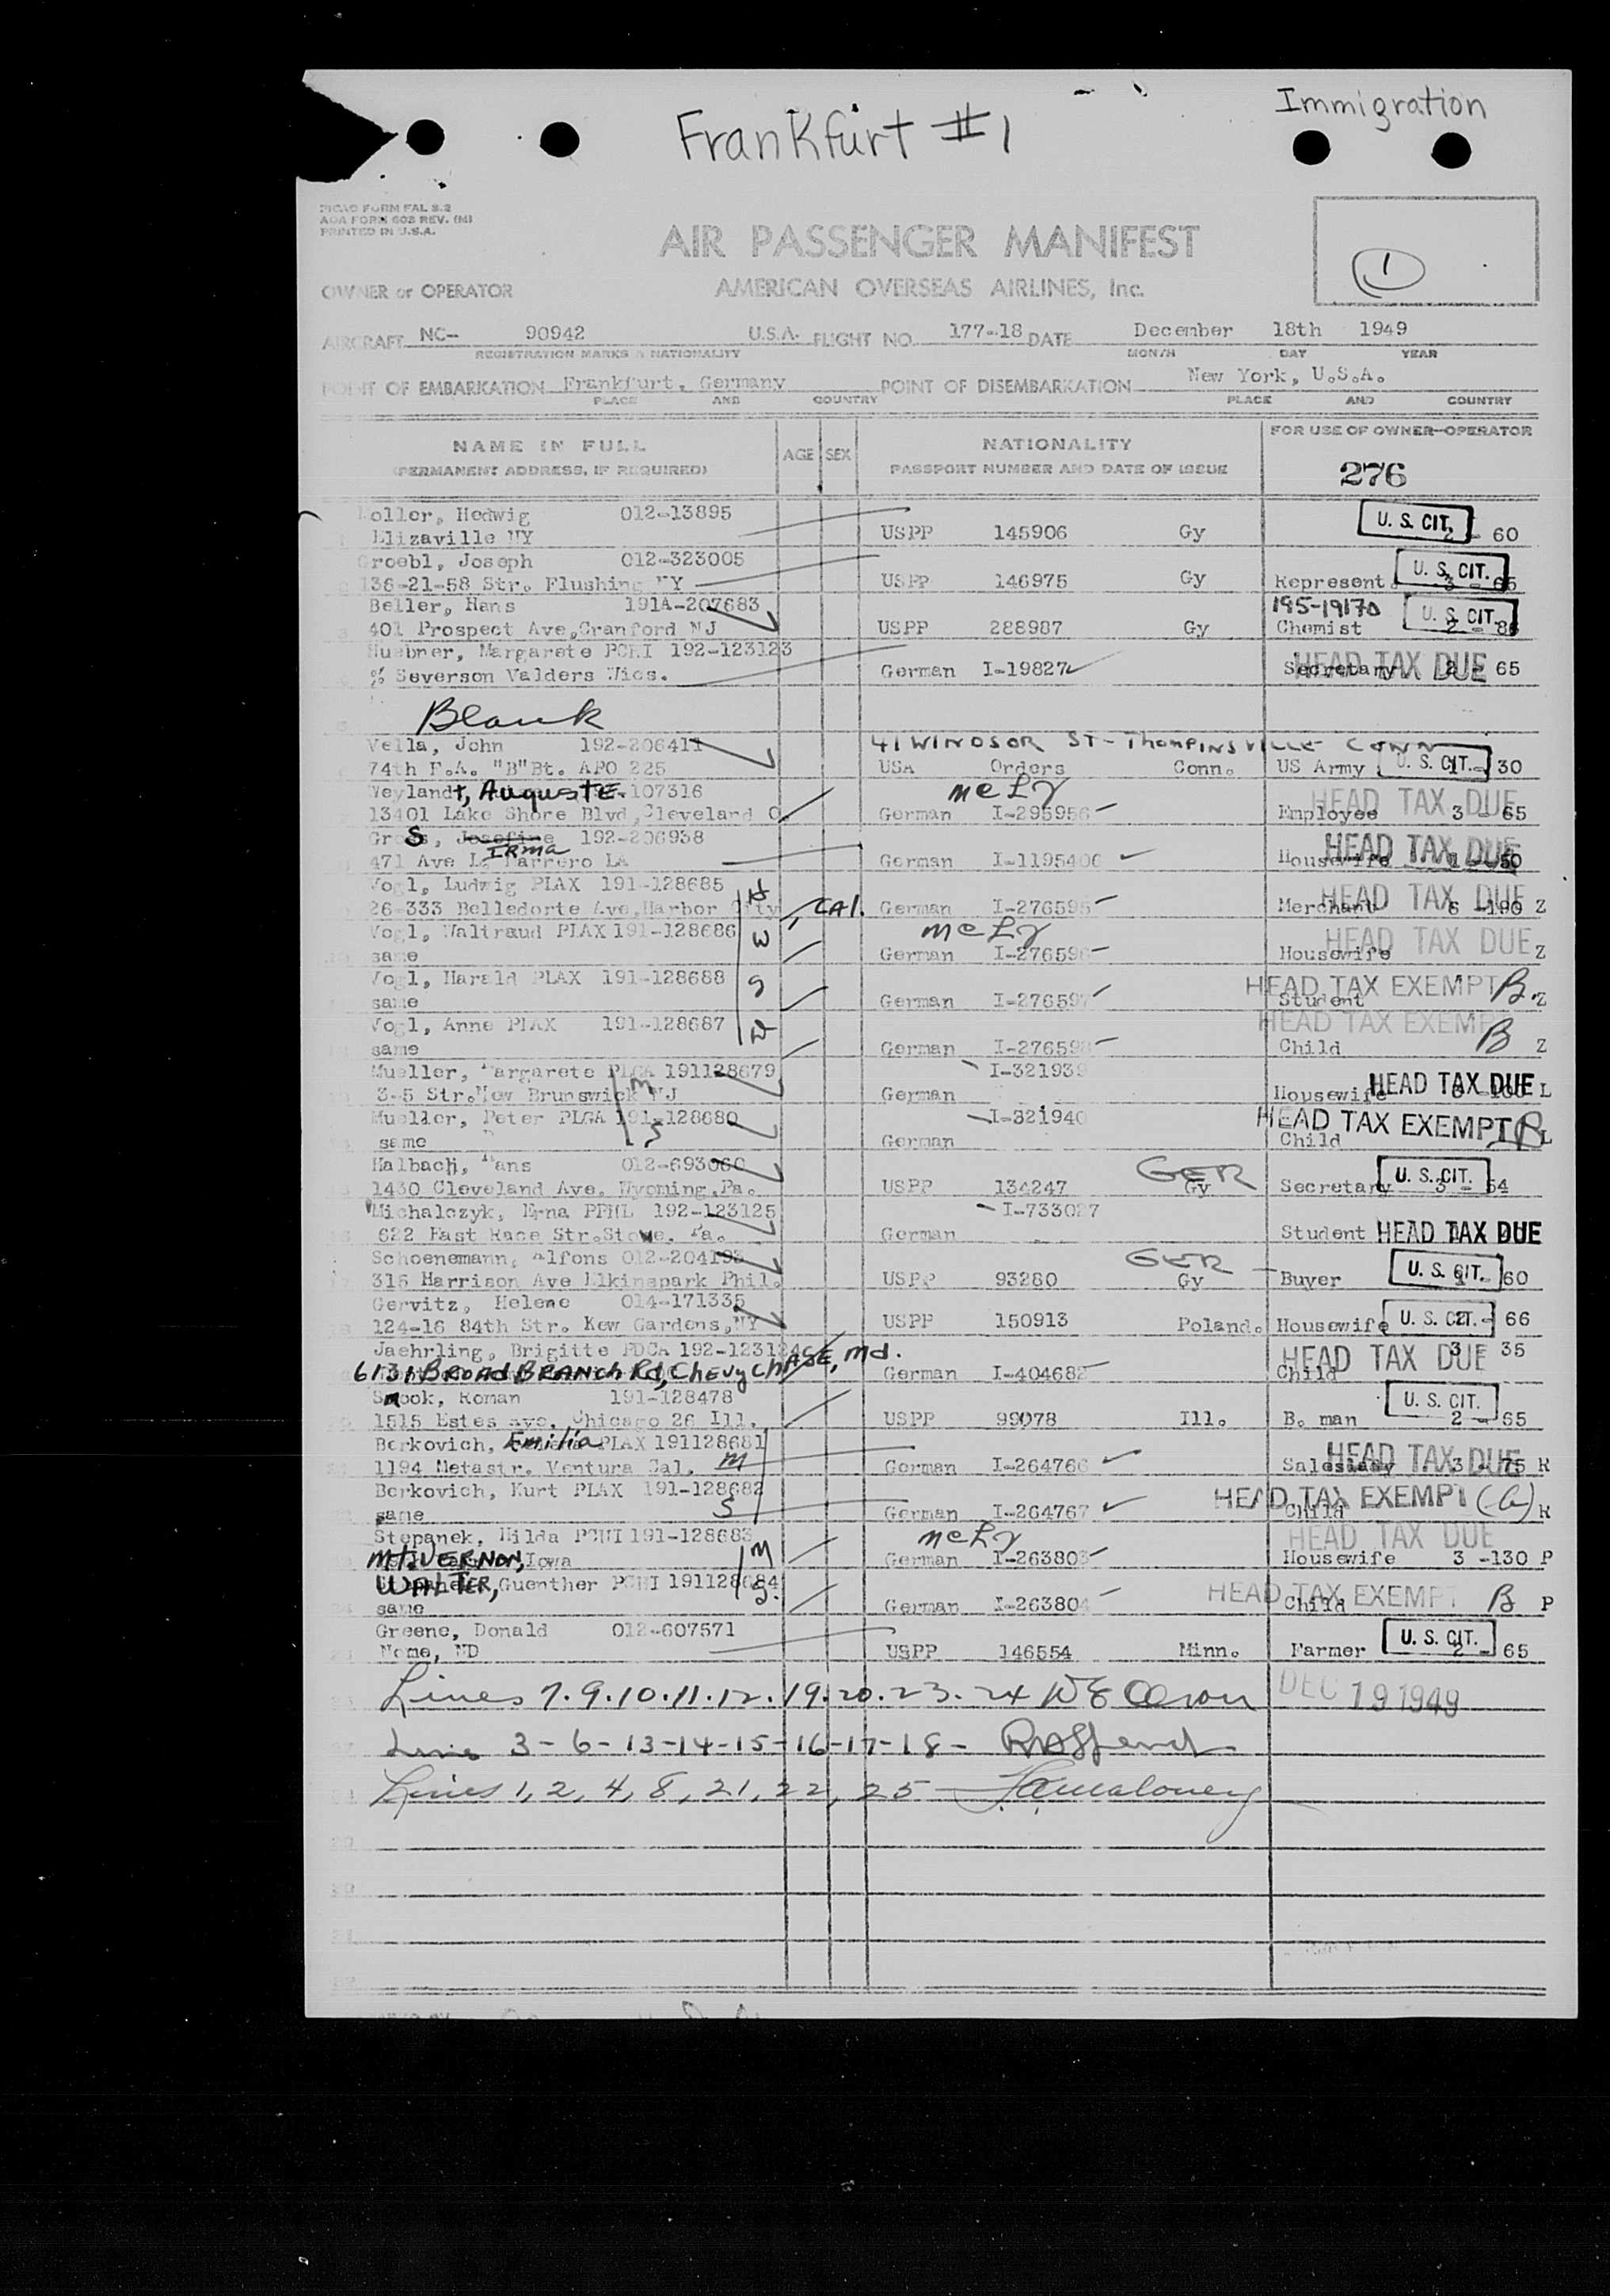 Frankfurt #1
Immigration
PICAO FORM FAL 3.2
AOA FORM 602 REV. (M)
PRINTED IN U.S.A.
AIR PASSENGER MANIFEST
1
OWNER or OPERATOR AMERICAN OVERSEAS AIRLINES, Inc.
AIRCRAFT NC- 90942 U.S.A. FLIGHT NO. 177-18 DATE December 18th 1949
REGISTRATION MARKS & NATIONALITY MONTH DAY YEAR
POINT OF EMBARKATION Frankfurt, Germany POINT OF DISEMBARKATION New York, U.S.A.
PLACE AND COUNTRY PLACE AND COUNTRY
NAME IN FULL AGE SEX NATIONALITY FOR USE OF OWNER-OPERATOR
(PERMANENT ADDRESS, IF REQUIRED) PASSPORT NUMBER AND DATE OF ISSUE
276
oller, Hedwig 012-13895
Elizaville NY USPP 145906 Gy U. S. CIT. 2 - 60
Groebl, Joseph 012-323005
136-21-58 Str. Flushing NY USPP 146975 Gy Represent. U. S. CIT. 3 - 65
Beller, Hans 191A-207683 195-19170
401 Prospect Ave,Cranford NJ USPP 288987 Gy Chemist U. S. CIT. 2 - 86
Huebner, Margarete PCHI 192-123123
% Severson Valders Wics. German I-19827 Secretary HEAD TAX DUE 2 - 65
Blank
Vella, John 192-206411 41 WINDSOR ST - THOMPINSVILLE CONN
74th F.A. "B"Bt. APO 225 USA Orders Conn. US Army U. S. CIT. 1 - 30
Weylandt, AUGUSTE. 107316
13401 Lake Shore Blvd,Cleveland O. German I-295956 Employee HEAD TAX DUE 3 - 65
Gross, Josefine IRMA 192-206938
471 Ave L, Marrero LA German I-1195406 Housewife HEAD TAX DUE
Vogl, Ludwig PLAX 191-128685 H
26-333 Belledorte Ave,Harbor City, CAl. German I-276595 Merchant HEAD TAX DUE 6 -190 Z
Vogl, Waltraud PLAX 191-128686 W
same German I-276596 Housewife HEAD TAX DUE Z
Vogl, Harald PLAX 191-128688 S
same German I-276597 Student HEAD TAX EXEMPT B. Z
Vogl, Anne PLAX 191-128687 D
same German I-276598 Child HEAD TAX EXEMPT B Z
Mueller, Margarete PLGA 191128679 M I-321939
3-5 Str.New Brunswick NJ German Housewife HEAD TAX DUE L
Mueller, Peter PLGA 191-128680 S I-321940
same German Child HEAD TAX EXEMPT B L
Halbach, Hans 012-693060 GER
1430 Cleveland Ave. Wyoming,Pa. USPP 134247 Gy Secretary U. S. CIT. 3 - 54
Michalczyk, Erna PPHL 192-123125 I-733027
622 East Race Str.Stowe. Pa. German Student HEAD TAX DUE
Schoenemann, Alfons 012-204193 GER
315 Harrison Ave Elkinspark Phil. USPP 93280 Gy Buyer U. S. CIT. 60
Gervitz, Helene 014-171335
124-16 84th Str. Kew Gardens,NY USPP 150913 Poland. Housewife U. S. CIT. 66
Jaehrling, Brigitte PDCA 192-123124 3 35
6131 BROAD BRANCH Rd, CHEVY CHASE, Md. German I-404682 Child HEAD TAX DUE
Snook, Roman 191-128478
1515 Estes ave. Chicago 26 Ill. USPP 99078 Ill. B. man U. S. CIT. 2 - 65
Berkovich, Emilia PLAX 191128681
1194 Metastr. Ventura Cal. M German I-264766 HEAD TAX DUE 3 - 75 R
Berkovich, Kurt PLAX 191-128682
same S German I-264767 Child HEAD TAX EXEMPT R
Stepanek, Hilda PCHI 191-128683 M
MT. VERNON, Iowa German I-263803 Housewife HEAD TAX DUE 3 -130 P
WALTER, Guenther PCHI 191128684 S.
same German I-263804 Child HEAD TAX EXEMPT B P
Greene, Donald 012-607571
Nome, ND USPP 146554 Minn. Farmer U. S. CIT. 2 - 65
Lines 7.9.10.11.12.19.20.23.24 DEC 19 1949
Line 3-6-13-14-15-16-17-18-
Lines 1, 2, 4, 8, 21, 22, 25 Maloney